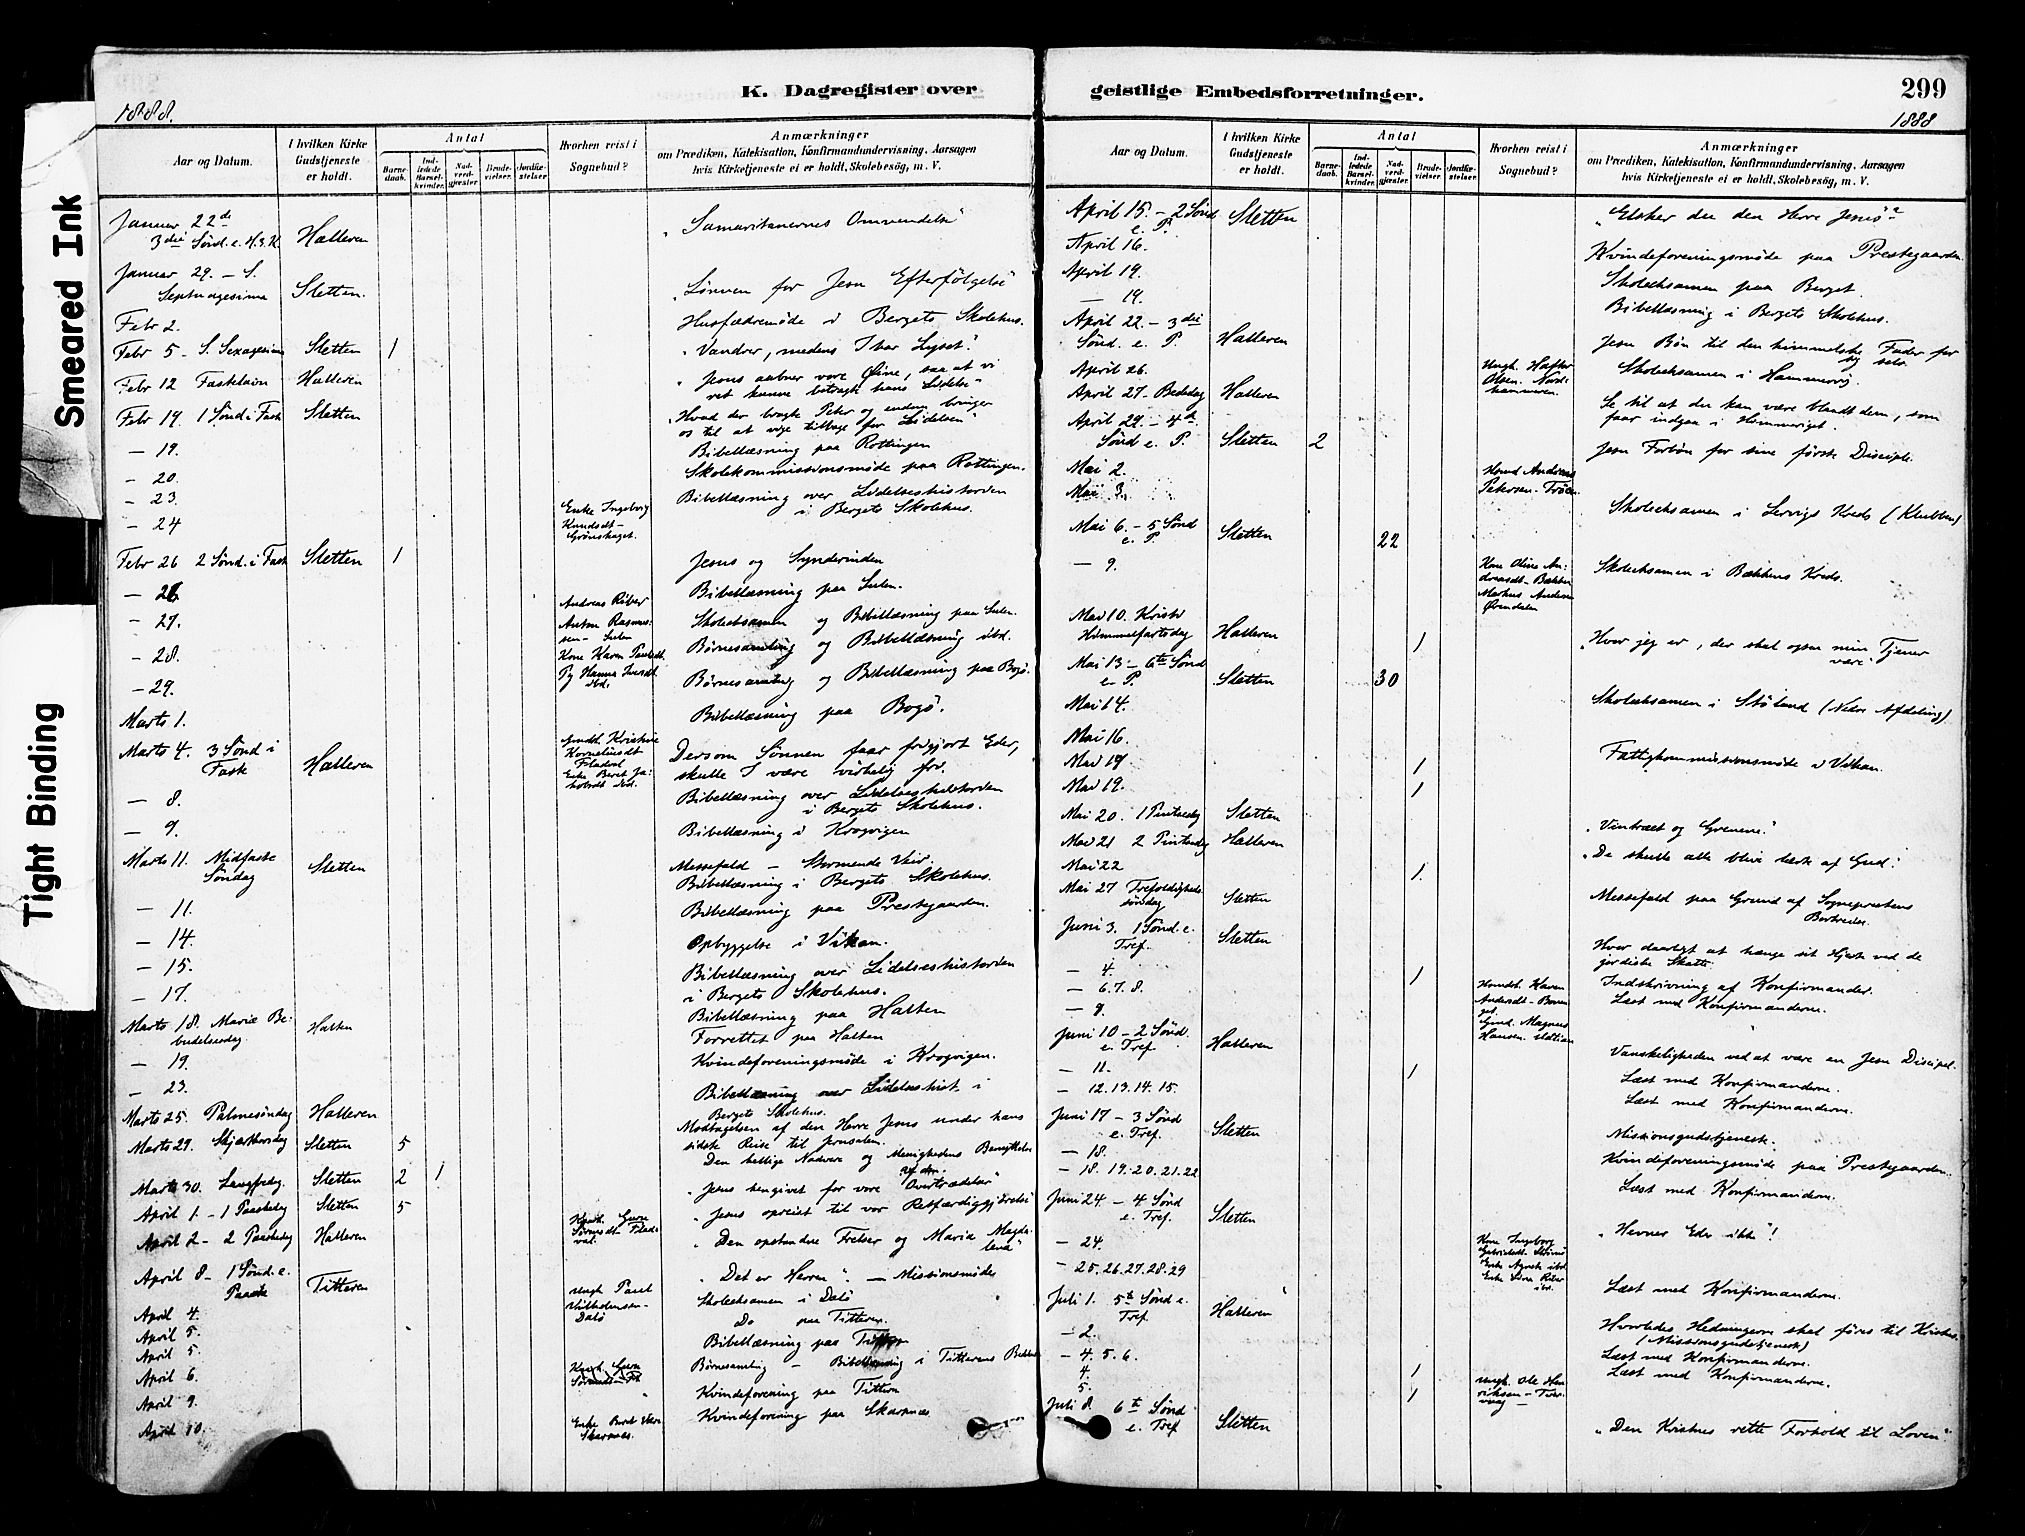 Smeared Ink
Tight Binding
K. Dagregister over
1888.
Aar og Datum.
I hvilken Kirke Gudstjeneste er holdt.
Antal
Barnedaab.
Indledede Barselkvinder.
Nadverdgjæster
Brudevielser.
Jordfæstelser
Hvorhen reist i Sognebud?
Anmærkninger
om Prædiken, Katekisation, Konfirmandundervisning, Aarsagen
hvis Kirketjeneste ei er holdt, Skolebesøg, m. V.
Januar 22de
3die Sønd. e. H. 3 K. Halteren „Samaritanernes Omvendelse“
Januar 29. - S.
Septuagesima Sletten. „Lønnen for Jesu Efterfølgelse“
Febr 2. Husfædremøde i Bergets Skolehus.
Febr 5 - S. Sexagesima Sletten 1 „Vandrer, medens I har Lyset“.
Febr 12 Fastelavn Halteren „Jesus aabner vore Øine, saa at vi
ret kunne betragte hans Lidelse“
Febr 19. 1 Sønd i Fast Sletten „Hvad der bragte Peter og endnu bringer
os til at vige tilbage for Lidelsen“
- 19. Bibellæsning paa Rottingen
- 20. Skolekommissionsmøde paa Rottingen.
- 23. Bibellæsning over Lidelseshistorien
i Bergets Skolehus.
- 24 Enke Ingeborg
Knudsdt -
Grønskaget.
Febr 26 2 Sønd. i Fast Sletten 1 Jesus og Synderinden
- 26. Bibellæsning paa Sulen.
- 27. Andreas Riber
Anton Rasmussen - Sulen Skoleeksamen og Bibellæsning paa Sulen.
- 28. Kone Karen Paulsdt. Børnesamling og Bibellæsning ibd.
- 29. Pg Hanna Iversdt ibd. Børnesamling og Bibellæsning paa Bogø.
Marts 1. Bibellæsning paa Bogø.
Marts 4. 3 Sønd i
Fast Halteren Kristine
Korneliusdt
Enke Beret Ja-
kobsdt ibd. Dersom Sønnen faar frigjort Eder,
skulle I være virkelig fri.
- 8. Bibellæsning over Lidelseshistorien
i Bergets Skolehus.
- 9. Bibellæsning i Krogvigen
Marts 11. Midfaste
Søndag Sletten Messefald - Stormende Veir.
Bibellæsning i Bergets Skolehus.
- 11. Bibellæsning paa Prestegaarden.
- 14. Opbyggelse i Vikan.
- 15. Bibellæsning over Lidelseshistorien
- 17. i Bergets Skolehus.
Bibellæsning paa Halten
Marts 18. Mariæ Be-
budelsesdag Halten Forrettet paa Halten
- 19. Kvindeforeningsmøde i Krogvigen.
- 23. Bibellæsning over Lidelseshist. i
Bergets Skolehus.
Marts 25. Palmesøndag Halteren Modtagelsen af den Herre Jesus under hans
sidste Reise til Jerusalem.
Marts 29. Skjærthorsdag Sletten 5 Den hellige Nadvere og Menighedens Benyttelse
af den.
Marts 30. Langfredag. Sletten 2 1 „Jesus hengivet for vore Overtrædelser“
April 1. - 1 Paaskedag Sletten 5 „Jesus opreist til vor Retfærdiggjørelse“
April 2 - 2 Paaskedag Halteren „Den opstandne Frelser og Maria Magda-
lena“
April 8 - 1 Sønd. e.
Paaske Titteren „Det er Herren“. - Missionsmøde
April 4. Ungk. Paul
Vilhelmsen -
Dalø Skoleeksamen i Dalø
April 5. Do paa Titteren
April 5. Bibellæsning paa Titteren
April 6. Børnesamling - Bibellæsning i Titterens
April 9. Kvindeforening paa Titteren
April 10. Enke Beret
Skarnæs. Kvindeforening paa Skarnæs
geistlige Embedsforretninger.
299
1888
Aar og Datum.
I hvilken Kirke Gudstjeneste er holdt.
Antal
Barnedaab.
Indledede Barselkvinder.
Nadverdgjæster
Brudevielser.
Jordfæstelser.
Hvorhen reist i Sognebud?
Anmærkninger
om Prædiken, Katekisation, Konfirmandundervisning, Aarsagen
hvis Kirketjeneste ei er holdt, Skolebesøg, m. V.
April 15. - 2 Sønd
e. P. Sletten „Elsker du den Herre Jesus“?
April 16. Kvindeforeningsmøde paa Prestegaarden.
April 19. Skoleeksamen paa Berget.
- 19. Bibellæsning i Bergets Skolehus.
April 22. - 3die
Sønd. e. P. Halteren Jesu Bøn til den himmelske Fader for
sig selv.
April 26. Ungk. Hafter
Olsen. Nord-
hammeren. Skoleeksamen i Hammervig.
April 27 - Bededag Halteren Se til at du kan være blandt dem, som
faar indgaa i Himmeriget.
April 29. - 4de
Sønd e. P. Sletten 2 Jesu Forbøn for sine første Disciple.
Mai 2. Andreas
Petersen -
Mai 3. Skoleeksamen i Kreds (Klubben)
Mai 6. - 5 Sønd
e. P. Sletten 22
- 9. Kone Oline An-
dreasdt - Bækken
Markus Andersen Skoleeksamen i Bækkens Kreds.
Mai 10. Kristi
Himmelfartsdag Halteren 1 „Hvor jeg er, der skal ogsaa min Tjener
være“
Mai 13 - 6te Sønd
e. P. Sletten 30
Mai 14. Skoleeksamen i Strøland (Nedre Afdeling)
Mai 16. Fattigkommissionsmøde i Vikan.
Mai 17 1
Mai 19. 1
Mai 20. 1 Pintsedag Sletten „Vintræet og Grenene.“
Mai 21 2 Pintsedag Halteren „De skulle alle blive lærte af Gud“.
Mai 22 1
Mai 27 Trefoldigheds-
søndag Sletten Messefald paa Grund af Sogneprestens
Bortreise.
Juni 3. 1 Sønd. e.
Tref. Sletten Hvor daarligt at hænge sit Hjerte ved de
jordiske Skatte.
- 4. 1
- 6. 7. 8. Indskrivning af Konfirmander.
- 9. Læst med Konfirmanderne.
Juni 10 - 2 Sønd.
e. Tref. Halteren Vanskeligheden ved at være en Jesu Discipel.
- 11. 1
- 12. 13. 14. 15. Læst med Konfirmanderne.
Læst med Konfirmanderne.
Juni 17 - 3 Sønd
e. Tref. Sletten Missionsgudstjeneste.
- 18. Kvindeforeningsmøde paa Prestegaarden.
- 18. 19. 20. 21. 22 Læst med Konfirmanderne.
Juni 24 - 4 Sønd
e. Tref. Sletten „Hevner Eder ikke“!
- 24. Kone Ingeborg
- 25. 26. 27. 28. 29 Læst med Konfirmanderne.
Juli 1. 5te Sønd e.
Tref. Halteren Hvorledes Hedningerne skal føres til Kristus.
(Missionsgudstjeneste)
- 2.
- 4. 5. 6. Læst med Konfirmanderne.
4. 1 Læst med Konfirmanderne.
5. 1 Ungk. Ole Hen-
riksen -
Juli 8. 6te Sønd
e. Tref Sletten „Den Kristnes rette Forhold til Loven“.